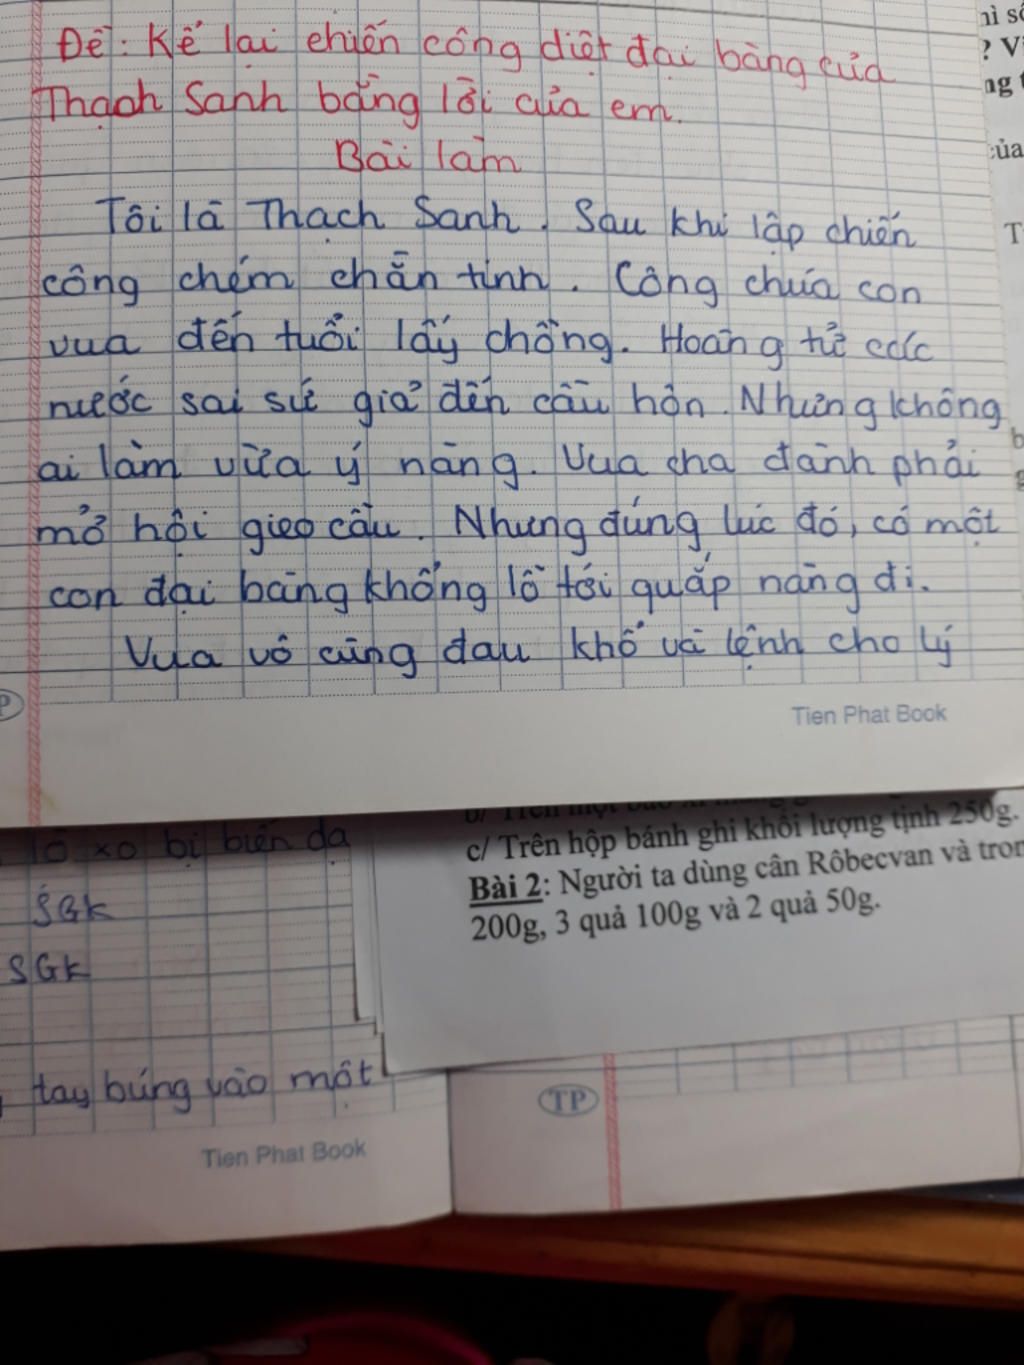 Đề: Kể lại chiến công diệt đại bàng của
Thạch Sanh bằng lời của em.
Bài làm
Tôi là Thạch Sanh. Sau khi lập chiến
công chém chằn tinh. Công chúa con
vua đến tuổi lấy chồng. Hoàng tử các
nước sai sứ giả đến cầu hôn. Nhưng không
ai làm vừa ý nàng. Vua cha đành phải
mở hội gieo cầu. Nhưng đúng lúc đó, có một
con đại bàng khổng lồ tới quắp nàng đi.
Vua vô cùng đau khổ và lệnh cho lý
Tien Phat Book
lò xo bị biến dạ
SGK
SGK
tay búng vào một
Tien Phat Book
c/ Trên hộp bánh ghi khối lượng tịnh 250g.
Bài 2: Người ta dùng cân Rôbecvan và tron
200g, 3 quả 100g và 2 quả 50g.
TP
của